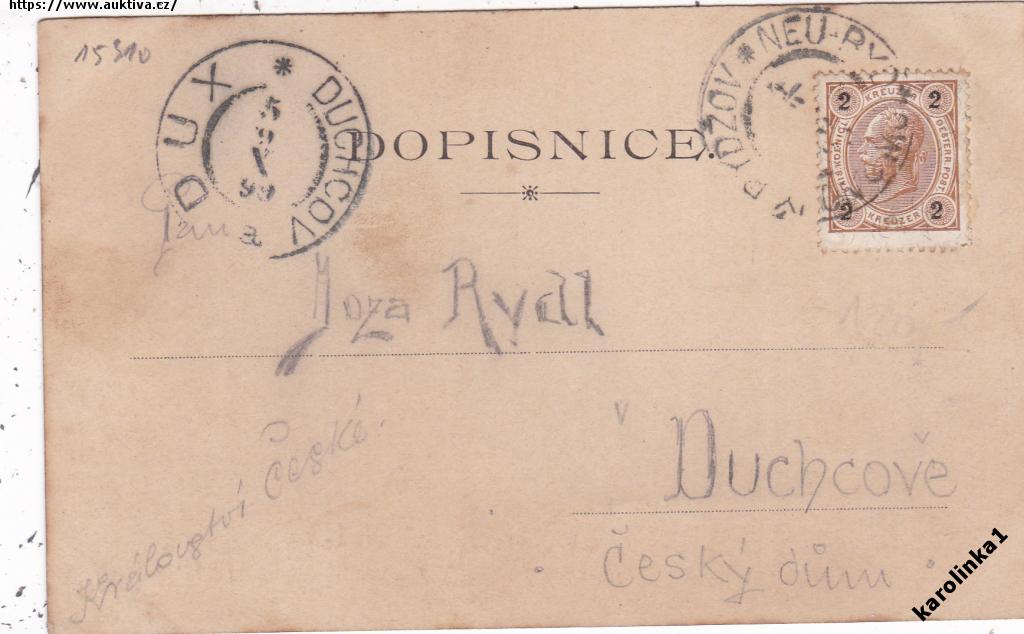 https://www.auktiva.cz/
15310
DUX * DUCHCOV
5
99
DOPISNICE.
NEU-BY
BYDŽOV *
2 KREUZER 2
2 KREUZER 2
Pan
Joza Rydl
v
Duchcově
Království České.
Český dům
karolinka1